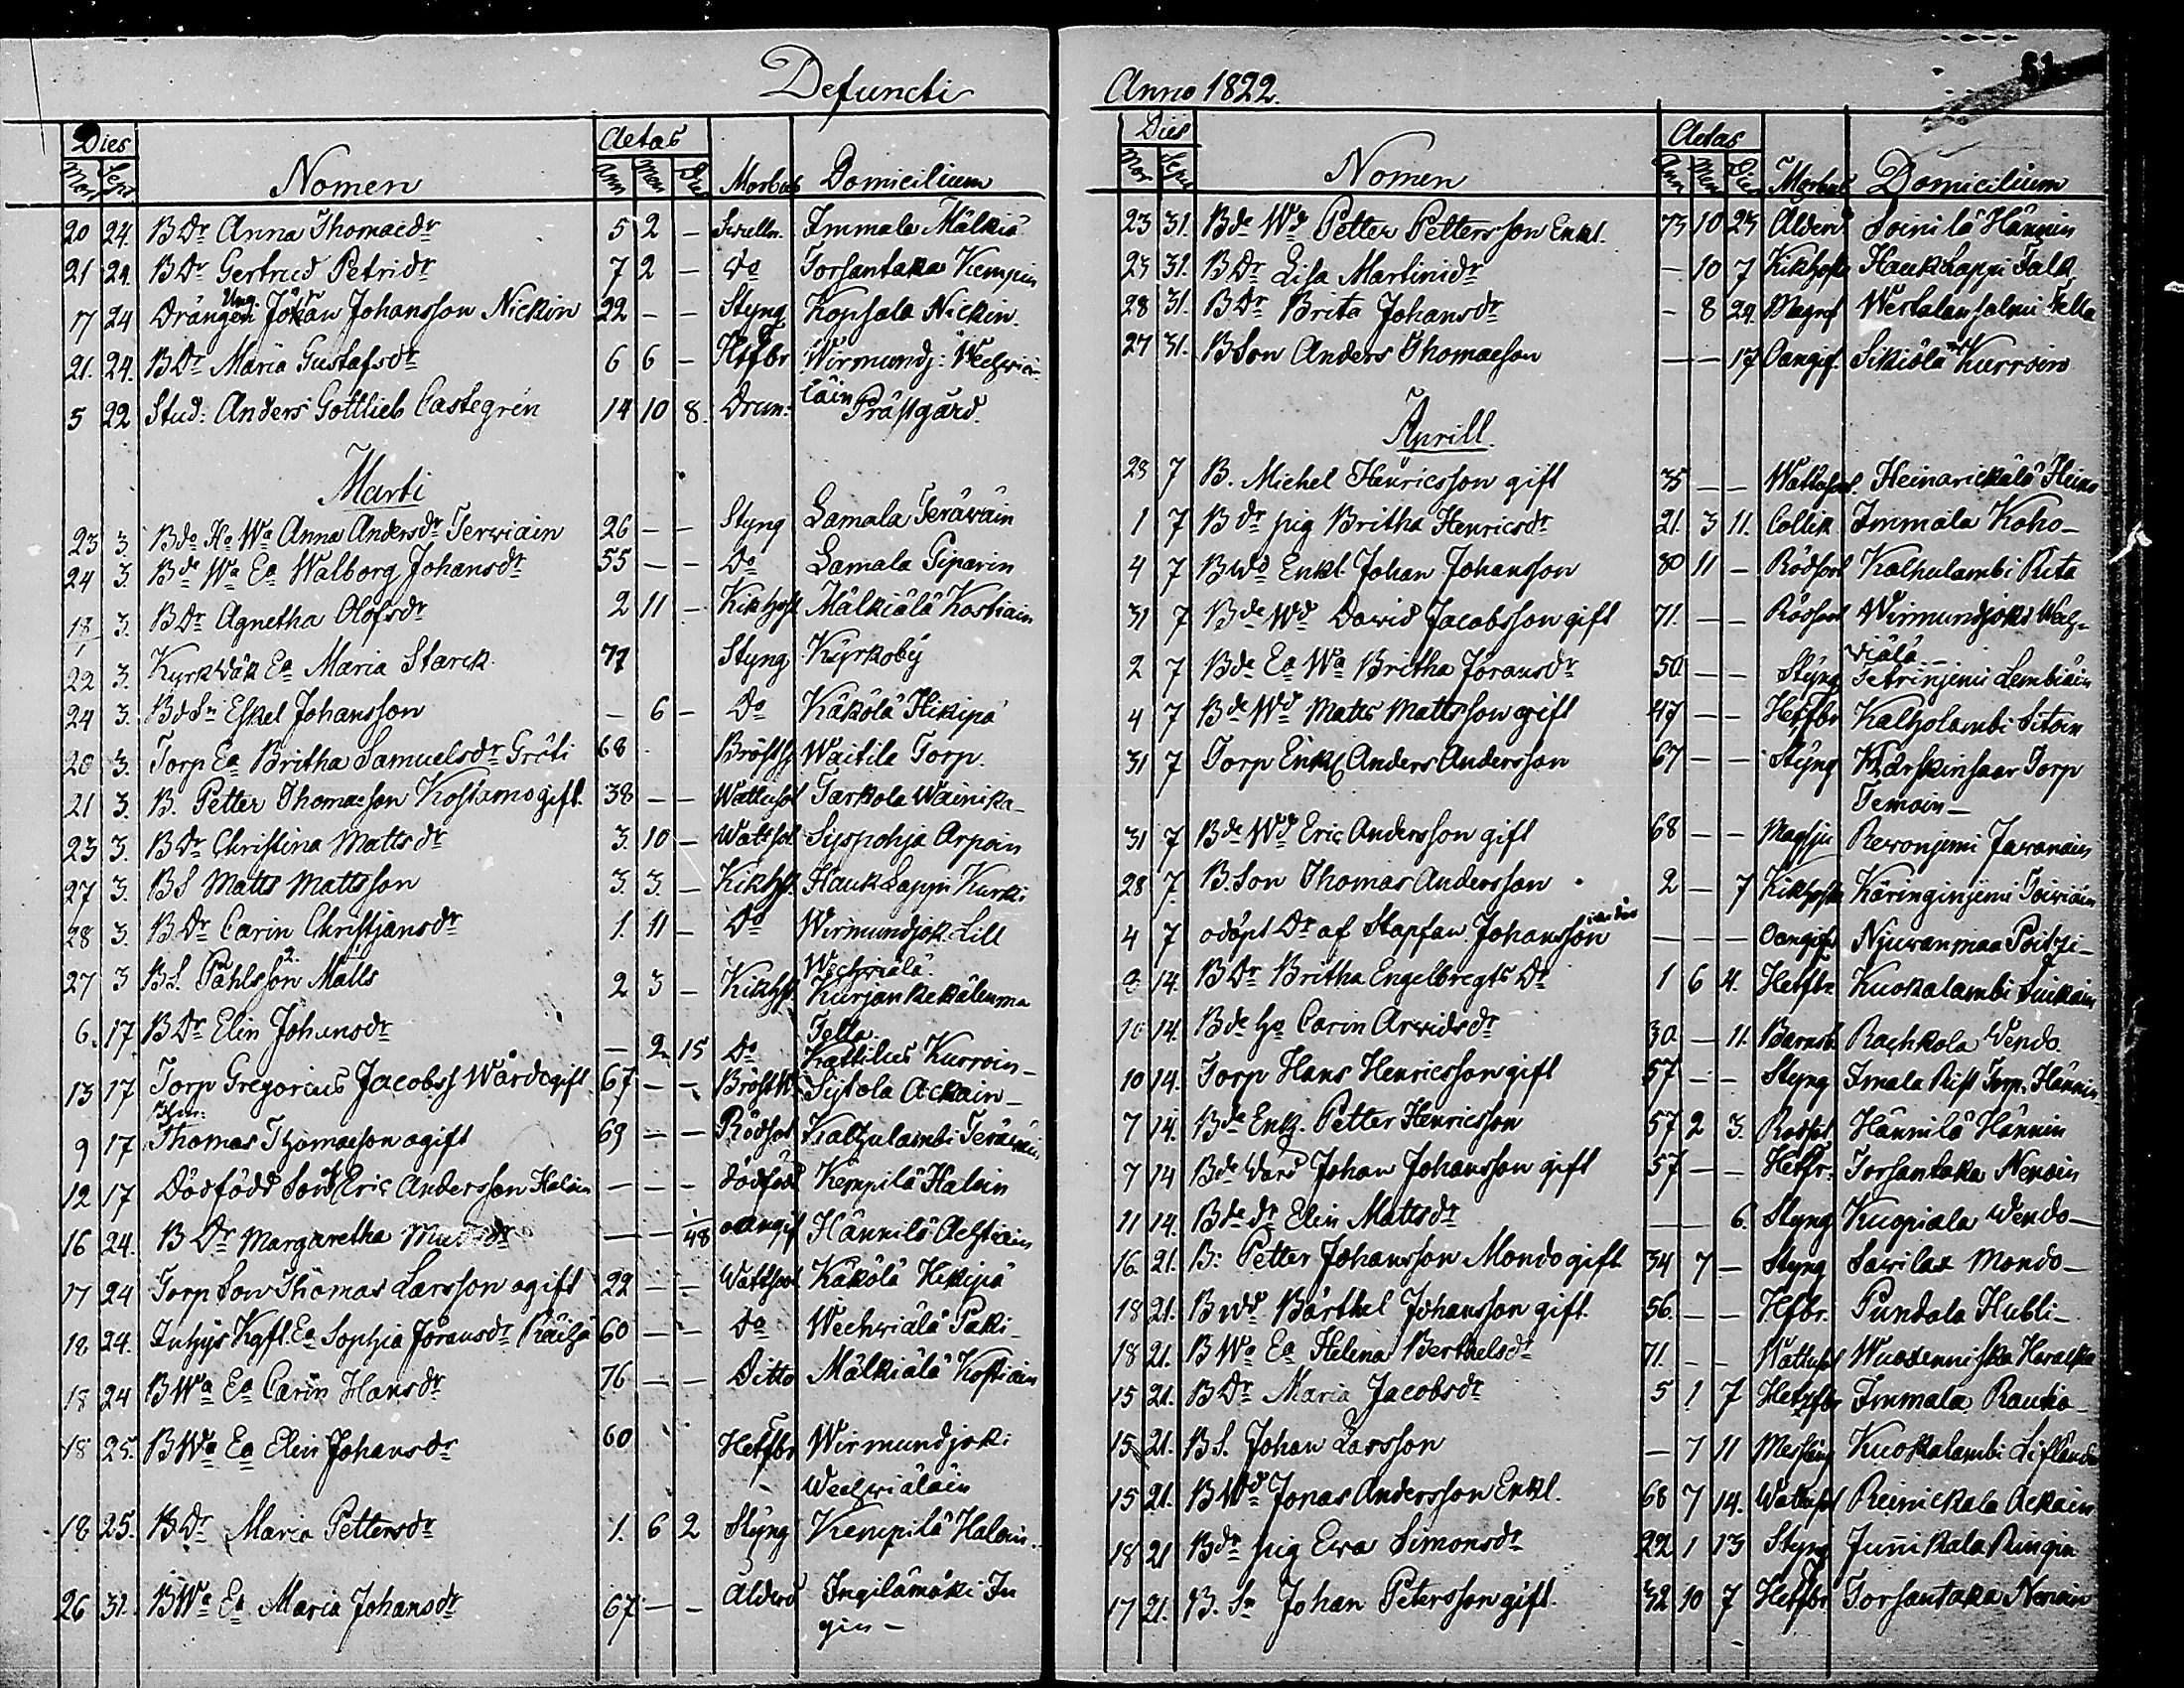 Defuncti
Dies Nomen Aetas Morbus Domicilium
Mor Sepu Ann Men Die
20 24. B Dr Anna Thomaedr 5 2 – Immala Mälkiä
21 24. B Dr Gertrud Petridr 7 2 – Do Torsantaka Kempin
17 24 Drängen Ung Johan Johansson Nickin 22 – – Styng Kopsala Nickin.
21. 24. B Dr Maria Gustafsdr 6 6 – Hetfbr Wirmundj: Wechviä
läin
5 22 Stud: Anders Gottlieb Castegrén 14 10 8. Drun: Prästgård.
Marti
23 3. Bde Ho Wa Anna Andersdr Terwiäin 26 – – Styng Lamala Teräwäin
24 3. Bde Wa Ea Walborg Johansdr 55 – – Do Lamala Piparin
18 3. B Dr Agnetha Olofsdr 2 11 – Kikhost Mälkiälä Kostiain
22 3. Kyrkwäk Ea Maria Starck 77 Styng Kyrkoby
24 3. Bd Sn Eskel Johansson – 6 – Do Käkölä Hikipä
20 3. Torp Ea Britha Samuelsdr Gröti 68 Bröstsj Waitila Torp.
21 3. B. Petter Thomaeson Kostamo gift. 38 – – Wattusot Tarkola Wainika –
23 3. B Dr Christina Mattsdr 3. 10 – Wattsot Syspohja Arpain
27 3. B S Matts Mattsson 3. 3. – Kikhst. Hauklappi Kurki
28 3. B Dr Carin Christjansdr 1. 11 – Do Wirmundjok. Lill
Wechwiälä.
27 3 B S. Påhlsson Matts 2 3 – Kikhst Kurjankekälenma
Tella
6. 17 B Dr Elin Johansdr – 2 15 Do Kattilus Kurroin –
13 17 Torp Gregorius Jacobss Wårdo gift 67 – – Bröstw. Sistola Ackain –
9 17 Thomas Thomaeson ogift 69 – – Rödsot Kalhulambi Teräwäin
12 17 Dödfödd Son af Eric Andersson Halain – – – dödfödd Kempilä Halain
16 24. B Dr Margaretha – – 1/48 oangif Hännilä
17 24 Torp Son Thomas Larsson ogift 22 – – Wattsot Käkölä Hikipä
18 24. Inhys Kgft. Ea Sophia Jöransdr Räihä 60 – – Do Wechwiälä Paki –
18 24 B Wa Ea Carin Hansdr 76 – – Ditto Mälkiälä Kostiain
18 25. B Wa Ea Elin Johansdr 60 Hetfbr Wirmundjoki
Wechwiäläin
18 25. B Dr Maria Pettersdr 1. 6 2 Styng Kempilä Halain.
26 31. B Wa Ea Maria Johansdr 67 – – Ålderd Ingilämäki In
gin –
Anno 1822.
Dies Nomen Aetas Morbus Domicilium
Mor Sepu Ann Men Die
23 31. Bde Wd Petter Pettersson Enkl. 73 10 23 Ålderd Soinilä Hännin
23 31. B Dr Lisa Martinidr – 10 7 Kikhost Hauklappi Talk
28 31. B Dr Brita Johansdr – 8 24. Magref Westalansalmi Tella
27 31. B Son Anders Thomaeson – – 17 Oangif. Sikiölä Kurroin
Aprill.
28 7 B. Michel Henricsson gift 35 – – Wattusot. Heinarickälä Heino
1 7 B dr pig Britha Henricsdr 21. 3 11. Collik Immala Koho –
4 7 B Wd Enkl. Johan Johansson 80 11 – Rödsot Kalhulambi Rita
31 7 Bde Wd Dawid Jacobsson gift 71. – – Rödsot Wirmundjoki Wech-
wiälä
2 7 Bde Ea Wa Britha Jöransdr 50 – – Styng Petrinjemi Lembiäin
4 7 Bde Wd Matts Mattsson gift 47 – – Hetfbr Kalholambi Sitoin
31 7 Torp Enkl Anders Andersson 67 – – Styng Kärskinsaar Torp
Temoin –
31 7 Bde Wd Eric Andersson gift 68 – – Magsju Rewonjemi Jawanain
28 7. B. Son Thomas Andersson 2 – 7 Kikhosta Käringinjemi Toiviain
4 7 odöpt Dr af Stapfan Johansson – – – Oangif Njuwanmaa Poitzi –
8 14. B Dr Britha Engelbregts Dr 1 6 4. Hetfbr. Kuokalambi Suikain
10 14. Bde Ho Carin Arvidsdr 30 – 11. Barnsb. Rachkola Wendo.
10 14. Torp Hans Henricsson gift 57 – – Styng Imala Rist Torp. Hännin
7 14. Bde Enk. Petter Henricsson 57 2 3. Rödsot Hännilä Hännin
7 14 Bde Ward Johan Johansson gift 57 – – Hetfbr. Torsantaka Nenoin
11 14. Bde dr Elin Mattsdr – – 6. Styng Kuopiala Wendo –
16. 21. B: Petter Johansson Mondo gift 34 7 – Styng Sawilax Mondo –
18 21. B Wd Bärthel Johansson gift. 56. – – Hfbr. Pundala Hubli –
18 21. B Wa Ea Helena Berthelsdr 71. – – Wattusot Wuoxenniska
15 21. B Dr Maria Jacobsdr 5 1 7 Hetfbr Immala Rautio –
15 21. B S. Johan Larsson – 7 11 Mesling Kuokalambi Liflände
15 21. B Wd Jonas Andersson Enkl. 68 7 14. Wattusot Reinickala Ackain
18 21 B dr pig Ewa Simonsdr 22 1 13 Styng Junikala Ringin
17 21. B. Sn Johan Petersson gift. 32 10 7 Hetfbr Torsantaka Nenoin